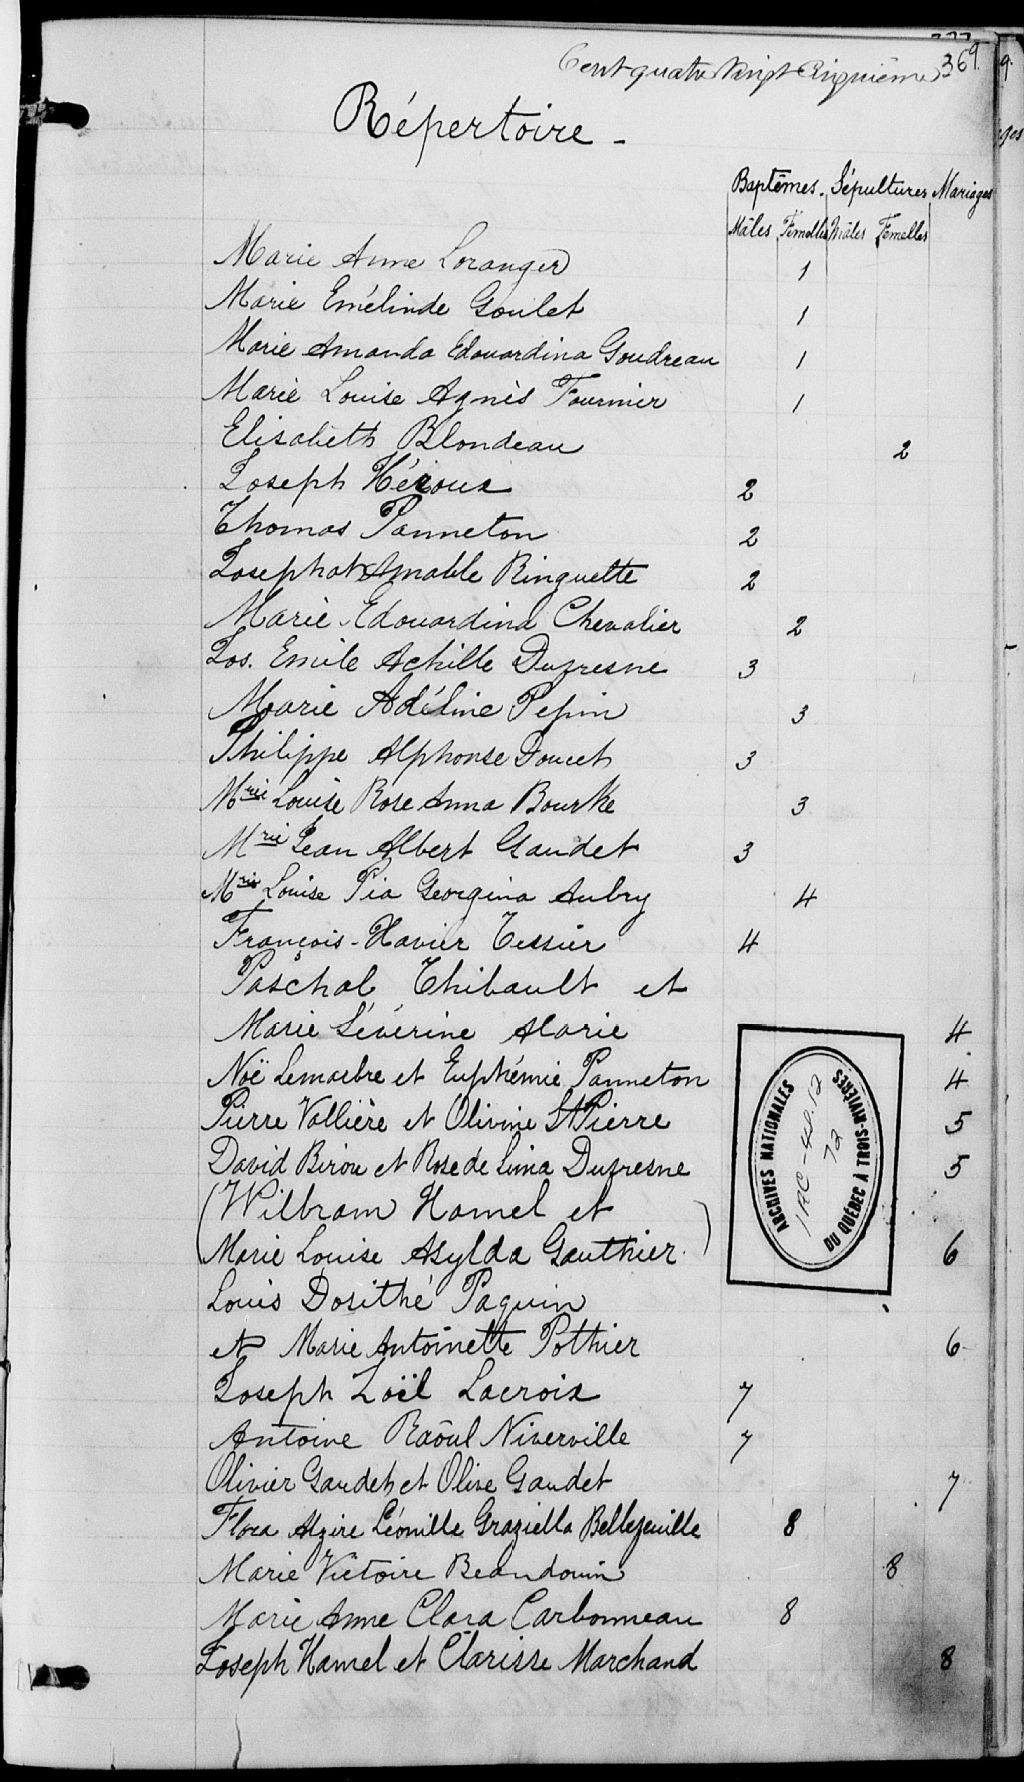 Cent quatre Vingt Cinquième 369
Répertoire -
Baptêmes. Sépultures Mariages
Mâles Femelles Mâles Femelles
Marie Anne Loranger 1
Marie Emélinde Goulet 1
Marie Amanda Edouardina Goudreau 1
Marie Louise Agnès Fournier 1
Elisabeth Blondeau 2
Joseph Héroux 2
Thomas Panneton 2
Josephat Amable Ringuette 2
Marie Edouardina Chevalier 2
Jos. Emile Achille Dufresne 3
Marie Adéline Pepin 3
Philippe Alphonse Doucet 3
Mrie Louise Rose Anna Bourke 3
Mrie Jean Albert Gaudet 3
Mrie Louise Pia Georgina Aubry 4
François-Xavier Tessier 4
Paschal Thibault et
Marie Sévérine Alarie 4
Noë Lemaebre et Euphémie Panneton 4
Pierre Vallière et Olivine St Pierre 5
David Birou et Rose de Lima Dufresne 5
(Wilbram Hamel et
Marie Louise Asylda Gauthier.) 6
Louis Dosithé Paquin
et Marie Antoinette Pothier 6
Joseph Joël Lacroix 7
Antoine Raoul Niverville 7
Olivier Gaudet et Olive Gaudet 7
Flora Alzire Léonille Graziella Bellefeuille 8
Marie Victoire Beaudouin 8
Marie Anne Clara Carbonneau 8
Joseph Hamel et Clarisse Marchand 8
ARCHIVES NATIONALES
DU QUÉBEC À TROIS-RIVIÈRES
72